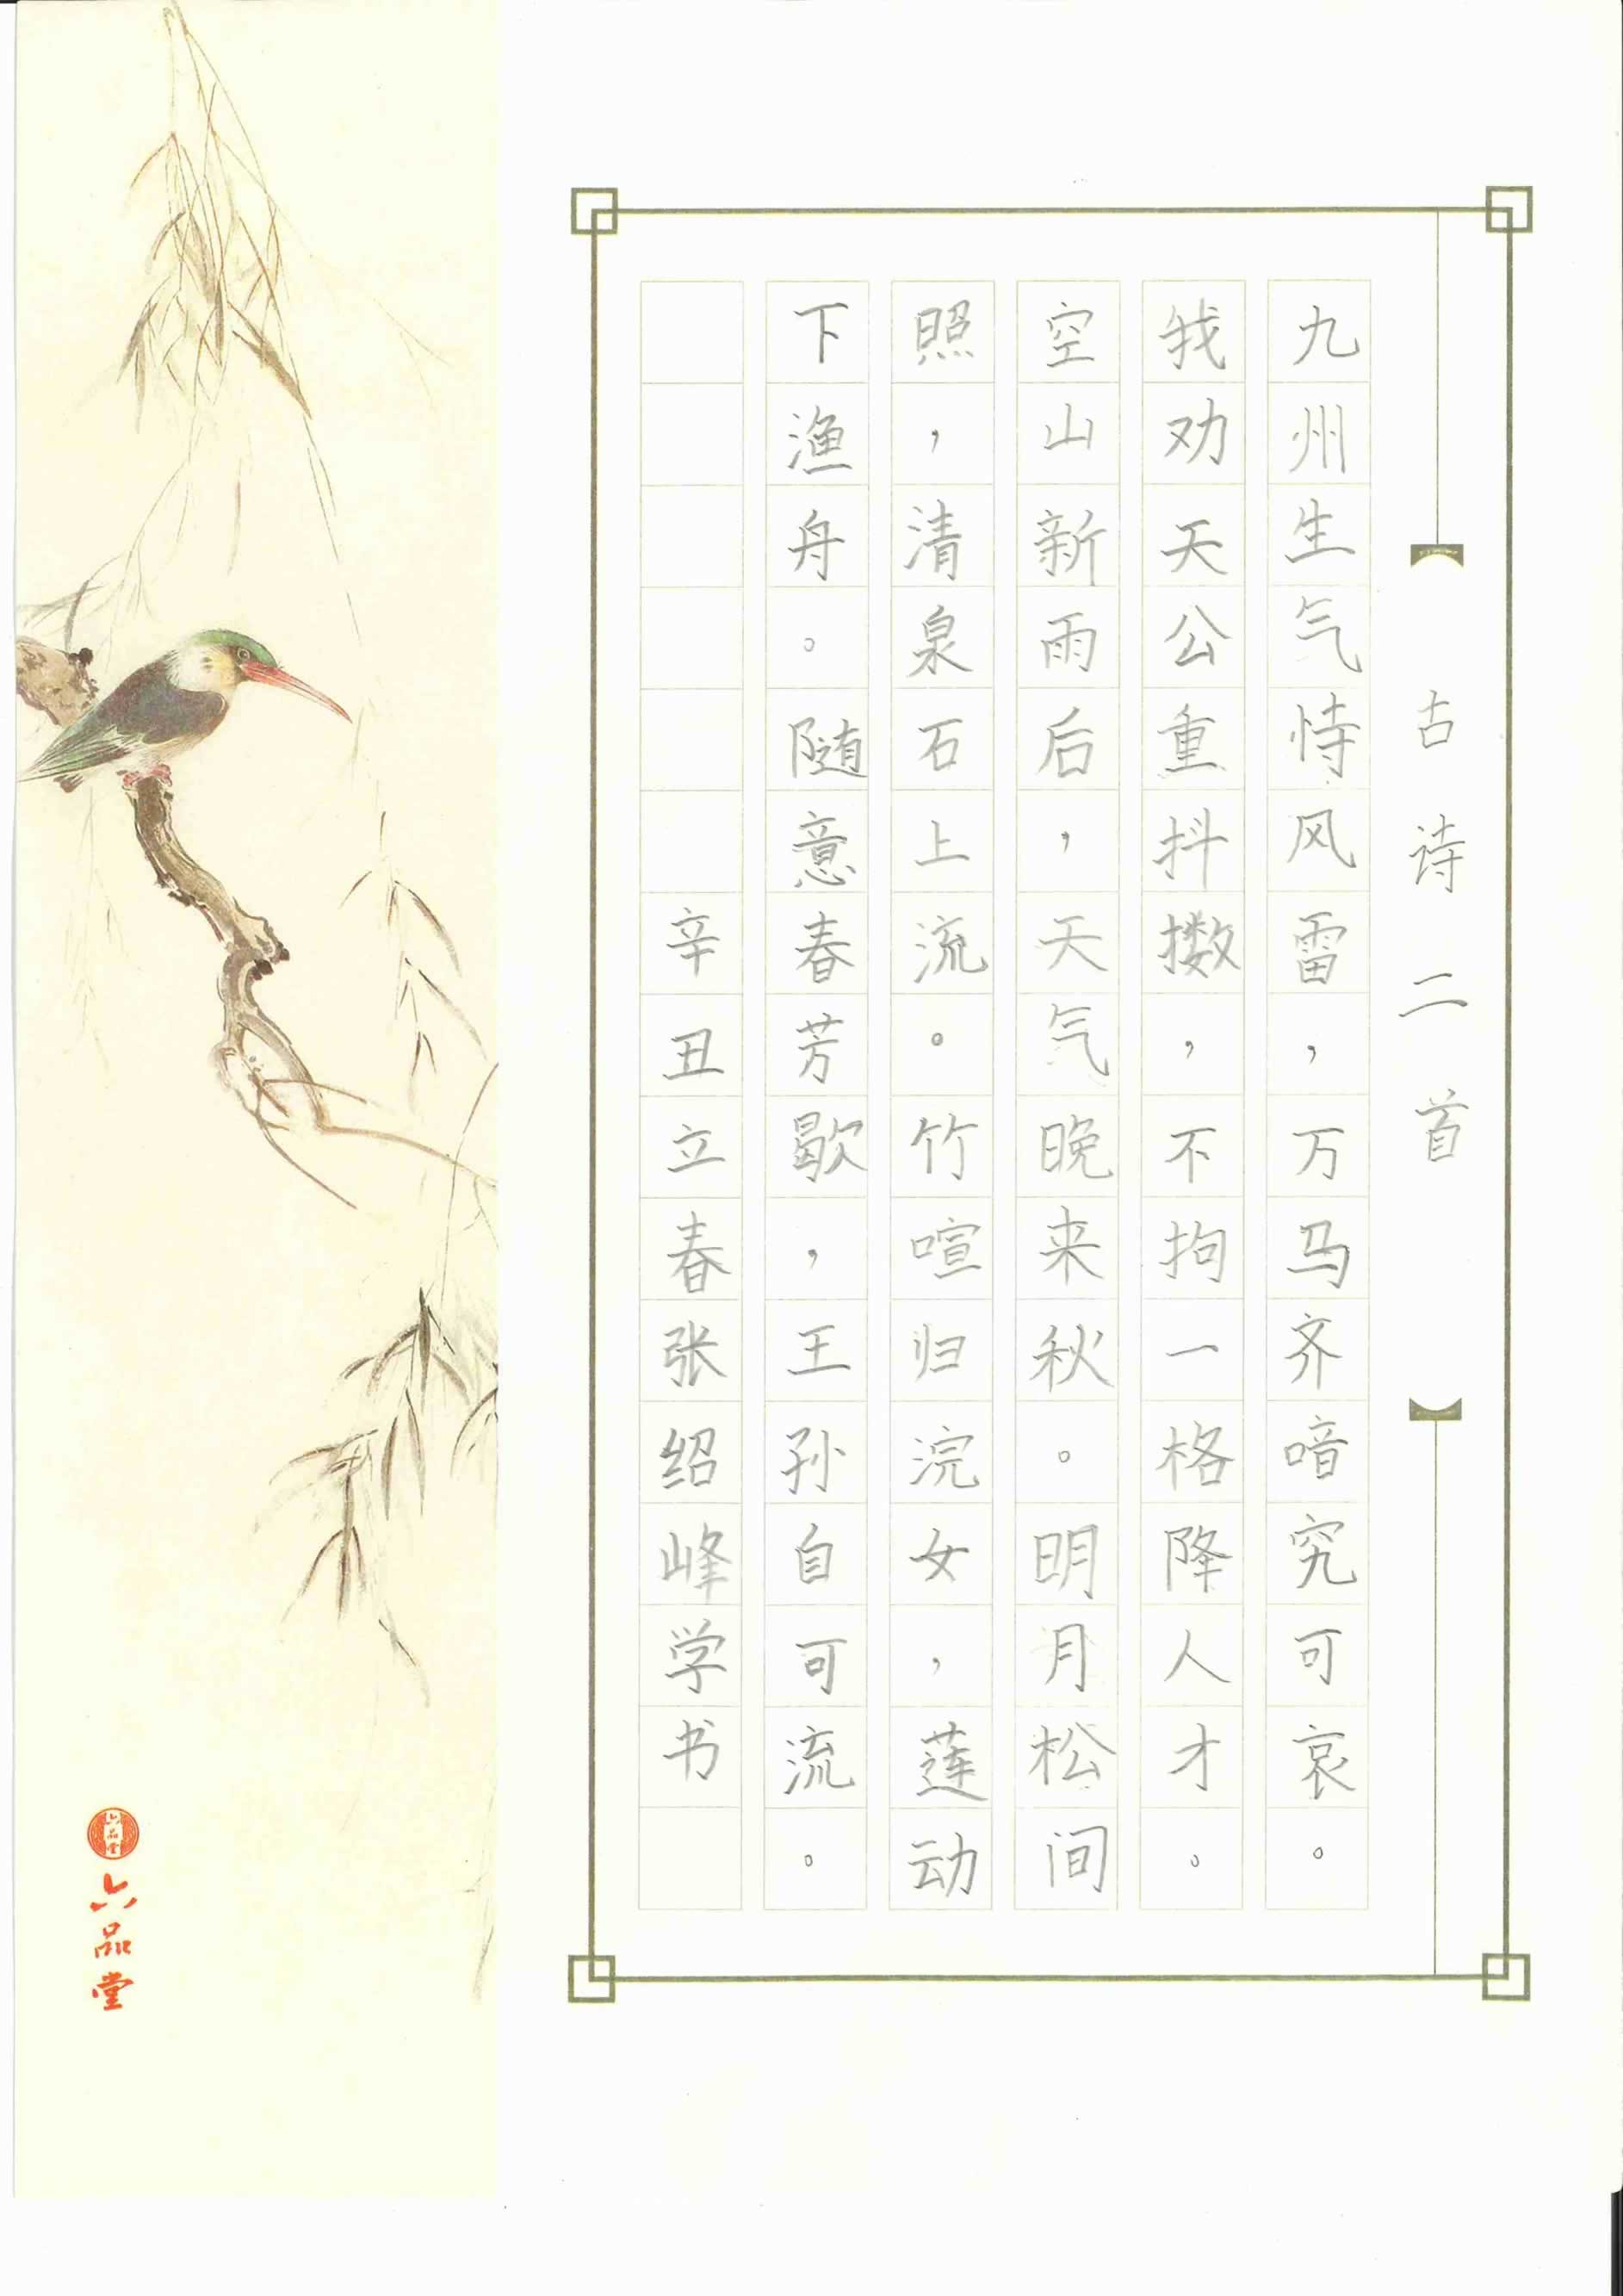 古诗二首
九州生气恃风雷，万马齐喑究可哀。
我劝天公重抖擞，不拘一格降人才。
空山新雨后，天气晚来秋。明月松间
照，清泉石上流。竹喧归浣女，莲动
下渔舟。随意春芳歇，王孙自可流。
辛丑立春张绍峰学书
六品堂
六品堂